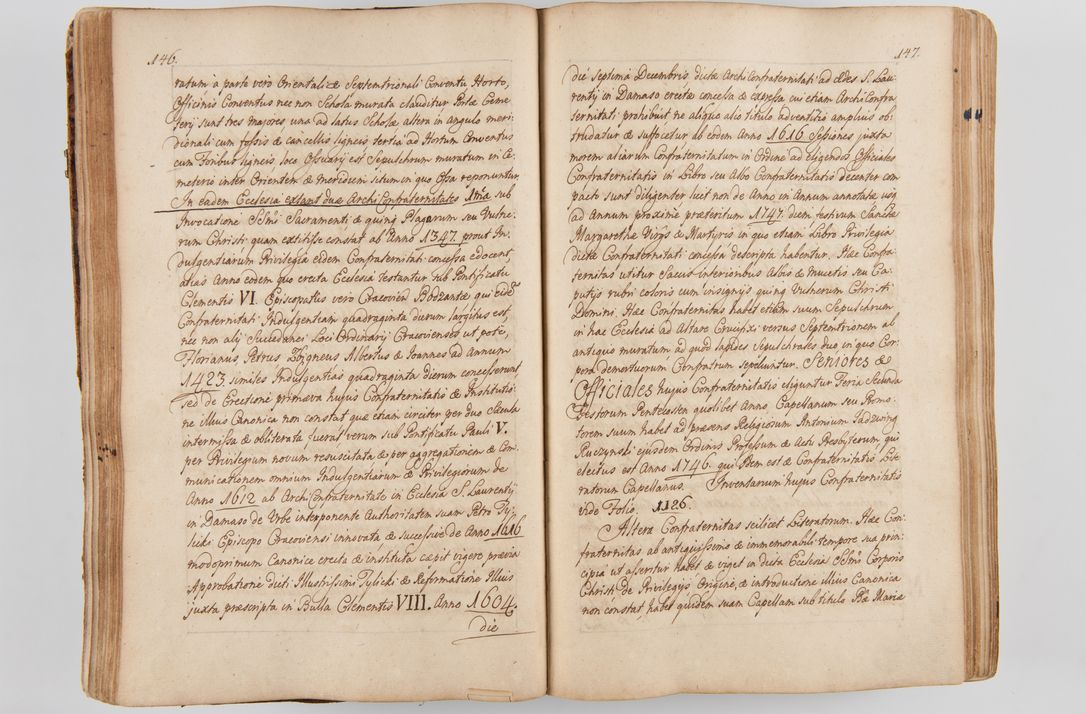 146.
ratum à parte verò Orientali & Septemtrionali Conventu Horto,
Officinis Conventus nec non Schola murata clauditur Portæ Cæme
terij sunt tres majores una ad latus Scholæ altera in Angulo meri-
dionali cum fossis & cancellis ligneis tertia ad Hortum Conventus
cum Foribus ligneis, loco Ossuarij est Sepulchrum muratum in Cæ-
meterio inter Orientem & meridiem situm in quo Ossa reponuntur
In eadem Ecclesia extant duæ ArchiConfraternitates 1ma sub
Invocatione SSmi Sacramenti & quinq Plagarum seu Vulne-
rum Christi quam extitisse constat ab Anno 1347. prout In-
dulgentiarum Privilegia eidem Confraternitati concessa edocent
alias Anno eodem quo erecta Ecclesia testantur sub Pontificatu
Clementis VI. Episcopatus vero Cracovien Bodzantæ qui eidē
Confraternitati Indulgentiam quadraginta dierum largitus est,
nec non alij Succedanei Loci Ordinarij Cracovienses ut potè,
Florianus, Petrus Zbigneus Albertus & Joannes ad Annum
1423. similes Indulgentias quadraginta dierum concesserunt
sed de Erectione primæva hujus Confraternitatis & Institutio-
ne illius Canonica non constat quæ etiam circiter per duo Sæcula
intermissa & obliterata fuerat verum sub Pontificatu Pauli V.
per Privilegium novum resuscitata & per aggregationem & Com-
municationem omnium Indulgentiarum & Privilegiorum de
Anno 1612 ab ArchiConfraternitate in Ecclesia S. Laurentij
in Damaso de Urbe interponente Authoritatem suam Petro Ty-
licki Episcopo Cracoviensi innovata & successive de Anno 1616
modoprimum Canonice erecta & instituta cæpit vigere prævia
Approbatione dicti Illustrissimi Tylicki & Reformatione Illius
juxta præscripta in Bulla Clementis VIII. Anno 1604.
die
147.
die Septima Decembris dictæ ArchiConfraternitati ad Ædes S. Lau-
rentij in Damaso erectæ concessa & expressa cui etiam ArchiConfra-
ternitati prohibuit ne aliquo alio titulo adventitio amplius ob-
trudatur & suffocetur ab eodem Anno 1616 Sessiones juxta
morem aliarum Confraternitatum in Ordine ad eligendos Officiales
Confraternitatis in Libro seu Albo Confraternitatis decenter com-
pacto sunt diligenter licet non de Anno in Annum annotatæ usq
ad Annum proxime præteritum 1747. diem festivum Sanctæ
Margarethæ Virgis & Martyris in quo etiam Libro Privilegia
dictæ Confraternitati concessa descripta habentur. Hæc Confra-
ternitas utitur Saccis interioribus Albis & Mucetis seu Ca-
putijs rubri coloris cum insignijs quinq Vulnerum Christi
Domini. Hæc Confraternitas habet etiam suum Sepulchrum
in hac Ecclesia ad Altare Crucifixi versus Septemtrionem ab
antiquo muratum ad quod lapides Sepulchrales duo in quo Cor-
pora demortuorum Confratrum sepeliuntur. Seniores &
Officiales hujus Confraternitatis eliguntur Feria Secunda
Festorum Pentecosten quolibet Anno, Capellanum seu Promo-
torem suum habet ad præsens Religiosum Antonium
Ruczynski ejusdem Ordinis Professum & Acti Presbyterum, qui
electus est Anno 1746. qui idem est & Confraternitatis Lite-
ratorum Capellanus. Inventarium hujus Confraternitatis
vide Folio. 1126.
Altera Confraternitas scilicet Literatorum. Hæc Con-
fraternitas ab antiquissimo & immemorabili tempore sua prin-
cipia ut asseritur habet & viget in dicta Ecclesia SSmi Corporis
Christi de Privilegijs Origine, & introductione illius Canonica
non constat, habet quidem suam Capellam sub titulo Bæ Mariæ